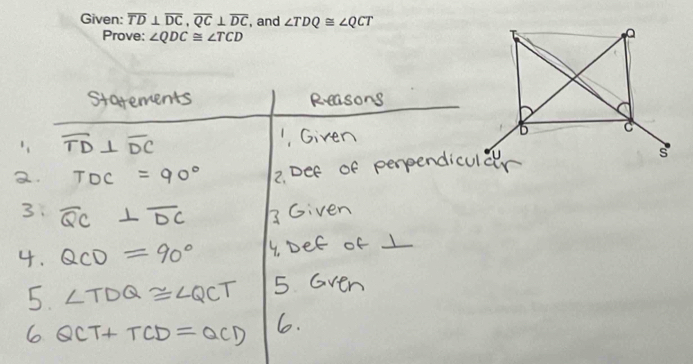 Given: TD ⊥ DC , QC ⊥ DC, and ∠TDQ ≅ ∠QCT
Prove: ∠QDC ≅ ∠TCD
T
Q
D
C
U
S
Statements
Reasons
1, TD ⊥ DC
1, Given
2. TDC = 90°
2, Def of perpendicular
3. QC ⊥ DC
3 Given
4. QCD = 90°
4, Def of ⊥
5. ∠TDQ ≅ ∠QCT
5. Gven
6 QCT + TCD = QCD
6.